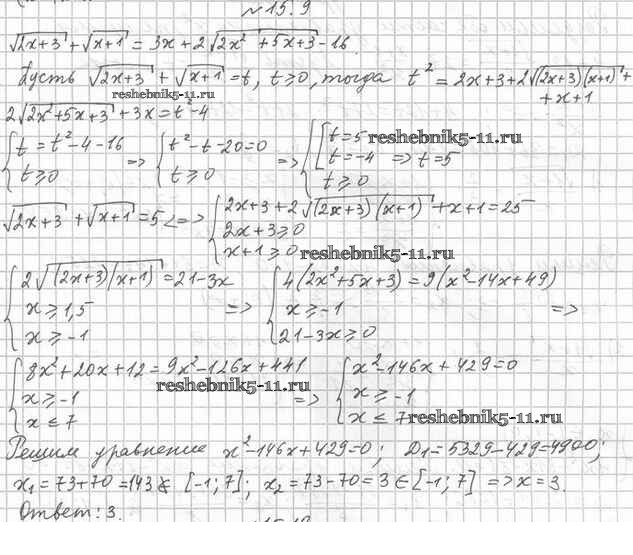 №15.9
√(2x+3) + √(x+1) = 3x + 2√(2x² + 5x + 3) - 16.
Пусть √(2x+3) + √(x+1) = t, t ≥ 0, тогда t² = 2x+3+2√((2x+3)(x+1)) +
+x+1
reshebnik5-11.ru
2√(2x²+5x+3) + 3x = t² - 4
{ t = t² - 4 - 16 => { t² - t - 20 = 0 => { [ t = 5 reshebnik5-11.ru
t ≥ 0 t ≥ 0 t = -4 => t = 5
t ≥ 0
√(2x+3) + √(x+1) = 5 <=> { 2x+3+2√((2x+3)(x+1)) + x+1 = 25
2x+3 ≥ 0
x+1 ≥ 0 reshebnik5-11.ru
{ 2√((2x+3)(x+1)) = 21-3x => { 4(2x²+5x+3) = 9(x²-14x+49) =>
x ≥ 1,5 x ≥ -1
x ≥ -1 21-3x ≥ 0
{ 8x²+20x+12 = 9x²-126x+441 => { x²-146x+429=0
reshebnik5-11.ru
x ≥ -1 x ≥ -1
x ≤ 7 x ≤ 7 reshebnik5-11.ru
Решим уравнение x²-146x+429=0; D₁=5329-429=4900;
x₁=73+70=143 ∉ [-1; 7]; x₂=73-70=3 ∈ [-1; 7] => x=3.
Ответ: 3.